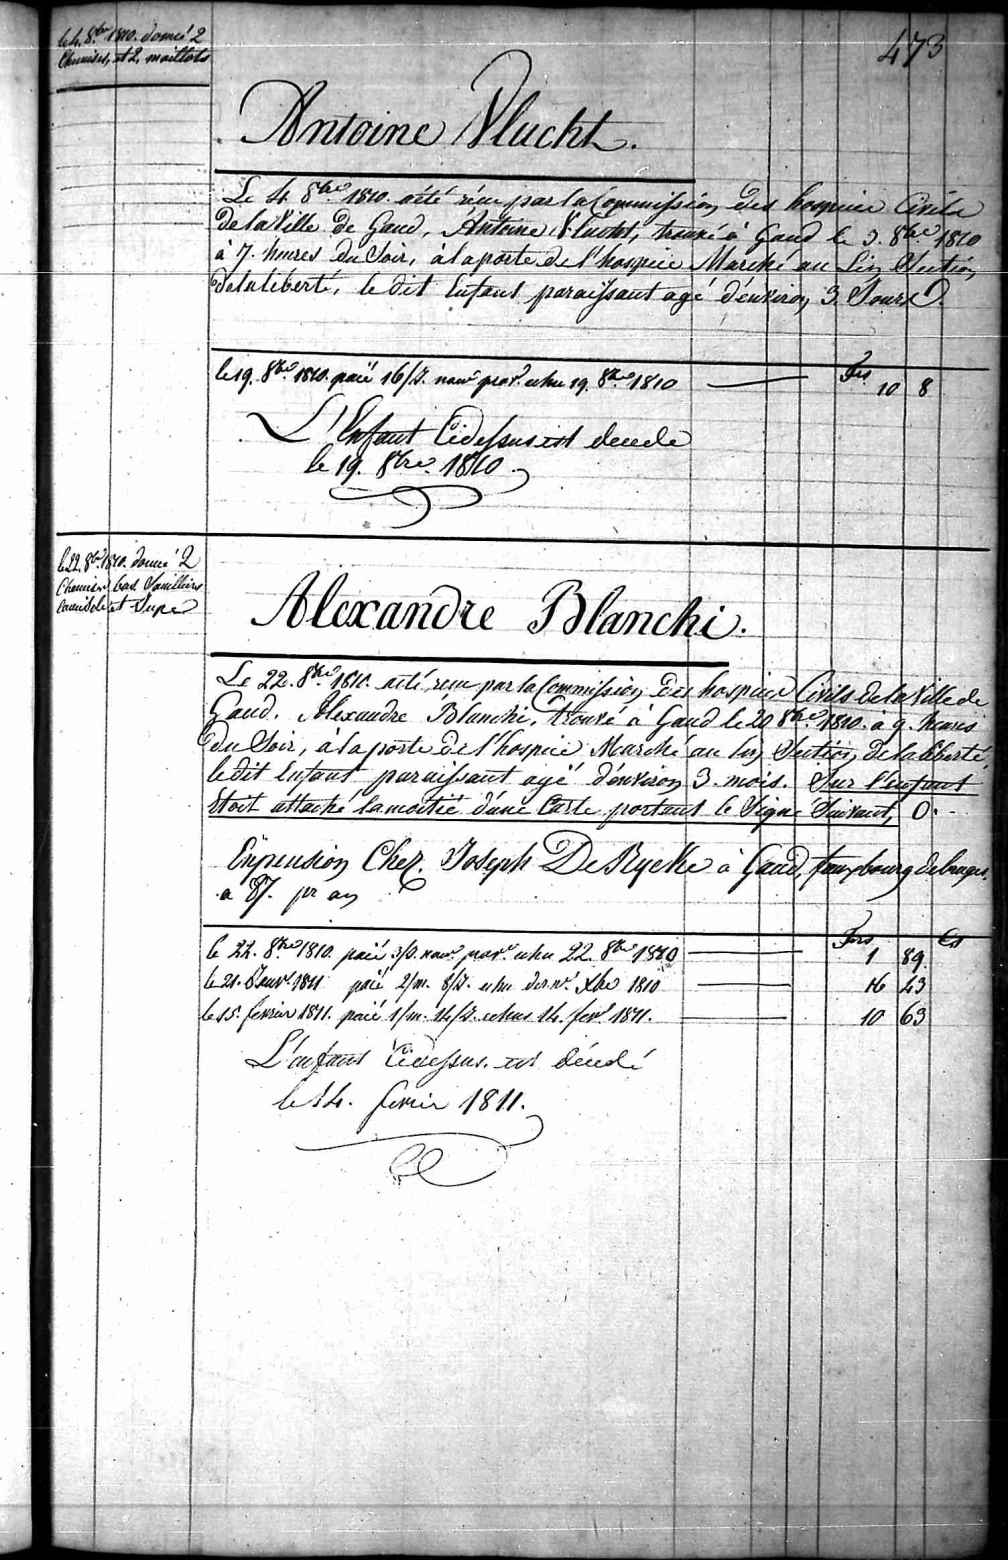 473
le 4. 8bre 1810. donné 2
Chemises, et 2. maillots
Antoine Vlucht.
Le 4 8bre 1810. a été reçu par la Commission des hospice Civils
de la Ville de Gand, Antoine Vlucht, trouvé à Gand le 3. 8bre 1810
à 7. heures du Soir, à la porte de l'hospice Marché au Lin Section
de la liberté, le dit Enfant paraissant agé d'environ 3. Jours.
le 19. 8bre 1810. paié 16/J. 19. 8bre 1810 Frs 10 8
L'Enfant Cidessus est decede
le 19. 8bre. 1810.
le 22. 8bre 1810. donné 2
Chemises bas Souilliers
camisole et Jupe
Alexandre Blanchi.
Le 22. 8bre 1810. a été reçu par la Commission des hospice Civils de la Ville de
Gand. Alexandre Blanchi, trouvé à Gand le 20 8bre. 1810. à 9. heures
du Soir, à la porte de l'hospice Marché au lin Section de la liberté,
le dit Enfant paraissant agé d'environ 3. mois. Sur l'enfant
étoit attaché la moitié d'une Carte portant le Signe Suivant, O.
En pension Chez. Joseph De Rycke à Gand, fauxbourg de bruges.
a 87. pr an
Frs Cs
le 22. 8bre 1810 paié 3/J. 22. 8bre 1810 1 89
le 21. Janvr. 1811 paié 2/m. 8/J. Xbre 1810 16 23
le 15. février 1811. paié 1/m. 14/J. 14. fevr. 1811. 10 63
L'enfant Cidessus. est décédé
le 14. fevrier 1811.